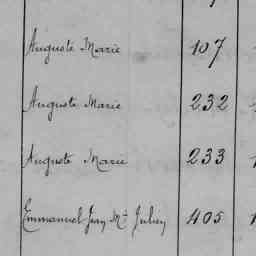 Auguste Marie 107
Auguste Marie 232
Auguste Marie 233
Emmanuel Jean Mie Julien 405